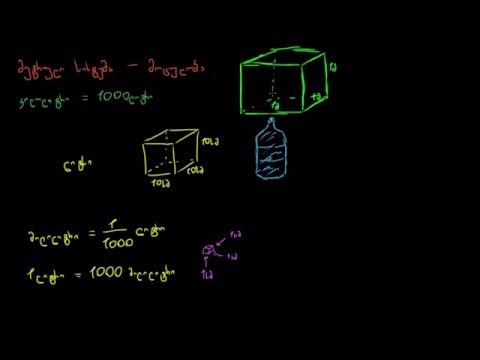 მეტრული სისტემა – მოცულობა
კილოლიტრი = 1000 ლიტრი
1მ
1მ
1მ
ლიტრი
10სმ
10სმ
10სმ
მილილიტრი = 1/1000 ლიტრი
1სმ
1სმ
1სმ
1 ლიტრი = 1000 მილილიტრი